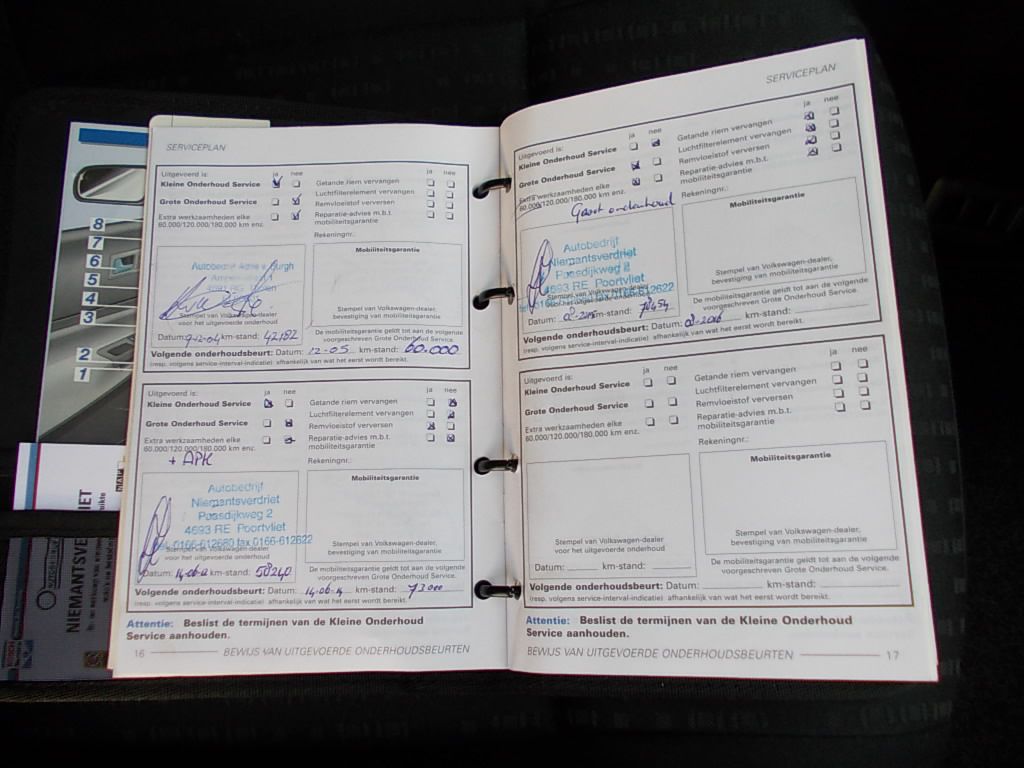 SERVICEPLAN
Uitgevoerd is: ja nee
Kleine Onderhoud Service
Grote Onderhoud Service
Extra werkzaamheden elke
60.000/120.000/180.000 km enz.
ja nee
Getande riem vervangen
Luchtfilterelement vervangen
Remvloeistof verversen
Reparatie-advies m.b.t.
mobiliteitsgarantie
Rekeningnr.:
Autobedrijf
Stempel van Volkswagen-dealer
voor het uitgevoerde onderhoud
Datum: 9-12-04 km-stand: 42182
Mobiliteitsgarantie
Stempel van Volkswagen-dealer,
bevestiging van mobiliteit
De mobiliteitsgarantie geldt tot aan de volgende
voorgeschreven Grote Onderhoud Service.
Volgende onderhoudsbeurt: Datum: 12-05 km-stand: 60.000
(resp. volgens service-interval-indicatie) afhankelijk van wat het eerst wordt bereikt.
Uitgevoerd is: ja nee
Kleine Onderhoud Service
Grote Onderhoud Service
Extra werkzaamheden elke
60.000/120.000/180.000 km enz.
+ APK
ja nee
Getande riem vervangen
Luchtfilterelement vervangen
Remvloeistof verversen
Reparatie-advies m.b.t.
mobiliteitsgarantie
Rekeningnr.:
Autobedrijf
Niemantsverdriet
Paasdijkweg 2
4693 RE Poortvliet
tel. 0166-612680 fax 0166-612622
Stempel van Volkswagen-dealer
voor het uitgevoerde onderhoud
Datum: km-stand: 58240
Mobiliteitsgarantie
Stempel van Volkswagen-dealer,
bevestiging van mobiliteit
De mobiliteitsgarantie geldt tot aan de volgende
voorgeschreven Grote Onderhoud Service.
Volgende onderhoudsbeurt: Datum: 14-06-14 km-stand: 73000
(resp. volgens service-interval-indicatie) afhankelijk van wat het eerst wordt bereikt.
Attentie: Beslist de termijnen van de Kleine Onderhoud
Service aanhouden.
16 BEWIJS VAN UITGEVOERDE ONDERHOUDSBEURTEN
SERVICEPLAN
Uitgevoerd is: ja nee
Kleine Onderhoud Service
Grote Onderhoud Service
Extra werkzaamheden elke
60.000/120.000/180.000 km enz.
Groot onderhoud
ja nee
Getande riem vervangen
Luchtfilterelement vervangen
Remvloeistof verversen
Reparatie-advies m.b.t.
mobiliteitsgarantie
Rekeningnr.:
Autobedrijf
Niemantsverdriet
Paasdijkweg 2
4693 RE Poortvliet
fax 0166-612622
Stempel van Volkswagen-dealer
voor het uitgevoerde onderhoud
Datum: km-stand:
Mobiliteitsgarantie
Stempel van Volkswagen-dealer,
bevestiging van mobiliteit
De mobiliteitsgarantie geldt tot aan de volgende
voorgeschreven Grote Onderhoud Service.
Volgende onderhoudsbeurt: Datum: km-stand:
(resp. volgens service-interval-indicatie) afhankelijk van wat het eerst wordt bereikt.
Uitgevoerd is: ja nee
Kleine Onderhoud Service
Grote Onderhoud Service
Extra werkzaamheden elke
60.000/120.000/180.000 km enz.
ja nee
Getande riem vervangen
Luchtfilterelement vervangen
Remvloeistof verversen
Reparatie-advies m.b.t.
mobiliteitsgarantie
Rekeningnr.:
Stempel van Volkswagen-dealer
voor het uitgevoerde onderhoud
Datum: km-stand:
Mobiliteitsgarantie
Stempel van Volkswagen-dealer,
bevestiging van mobiliteit
De mobiliteitsgarantie geldt tot aan de volgende
voorgeschreven Grote Onderhoud Service.
Volgende onderhoudsbeurt: Datum: km-stand:
(resp. volgens service-interval-indicatie) afhankelijk van wat het eerst wordt bereikt.
Attentie: Beslist de termijnen van de Kleine Onderhoud
Service aanhouden.
BEWIJS VAN UITGEVOERDE ONDERHOUDSBEURTEN 17
8
7
6
5
4
3
2
1
NIEMANTSVE